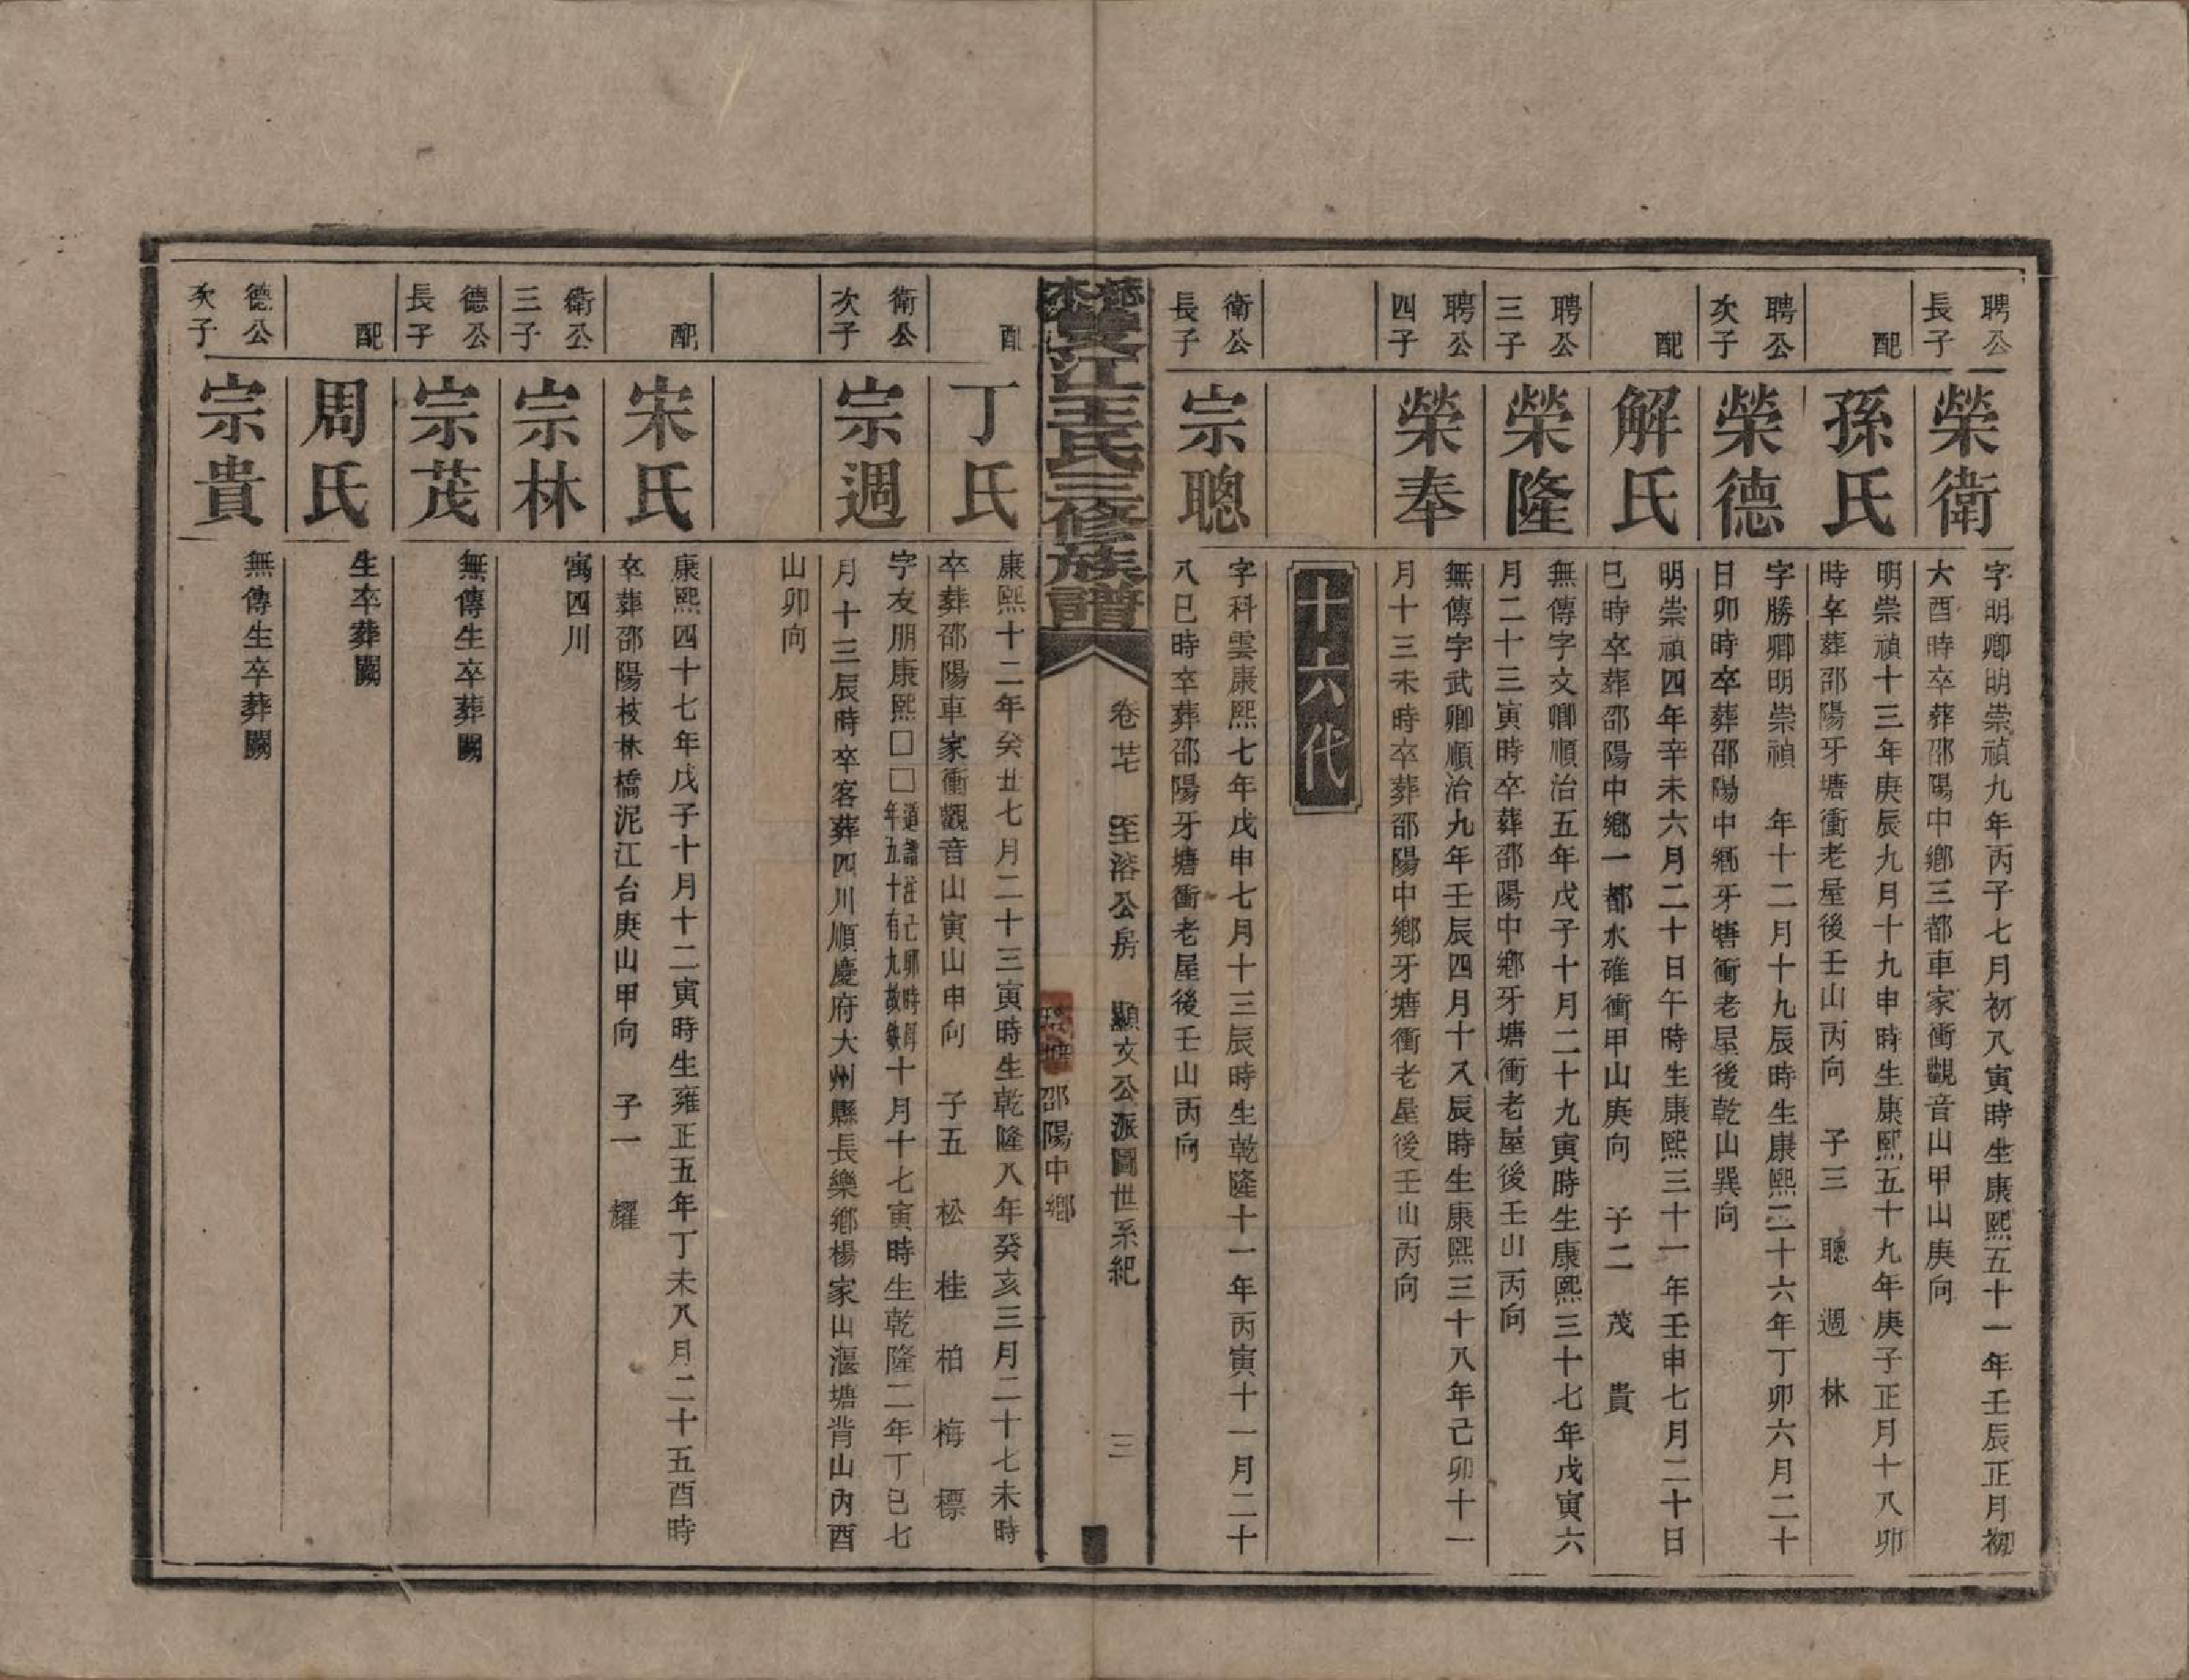 聘公長子
榮衛
字明卿明崇禎九年丙子七月初八寅時生康熙五十一年壬辰正月初
六酉時卒葬邵陽中鄉三都車家衝觀音山甲山庚向
配
孫氏
明崇禎十三年庚辰九月十九申時生康熙五十九年庚子正月十八卯
時卒葬邵陽牙塘衝老屋後壬山丙向 子三 聰 週 林
聘公次子
榮德
字勝卿明崇禎 年十二月十九辰時生康熙二十六年丁卯六月二十
日卯時卒葬邵陽中鄉牙塘衝老屋後乾山巽向
配
解氏
明崇禎四年辛未六月二十日午時生康熙三十一年壬申七月二十日
巳時卒葬邵陽中鄉一都水碓衝甲山庚向 子二 茂 貴
聘公三子
榮隆
無傳字文卿順治五年戊子十月二十九寅時生康熙三十七年戊寅六
月二十三寅時卒葬邵陽中鄉牙塘衝老屋後壬山丙向
聘公四子
榮奉
無傳字武卿順治九年壬辰四月十八辰時生康熙三十八年己卯十一
月十三未時卒葬邵陽中鄉牙塘衝老屋後壬山丙向
十六代
衛公長子
宗聰
字科雲康熙七年戊申七月十三辰時生乾隆十一年丙寅十一月二十
八巳時卒葬邵陽牙塘衝老屋後壬山丙向
雙江王氏三修族譜
卷廿 至溶公房 顯文公派圖世系紀 三
邵陽中鄉
配
丁氏
康熙十二年癸丑七月二十三寅時生乾隆八年癸亥三月二十七未時
卒葬邵陽車家衝觀音山寅山申向 子五 松 桂 柏 梅 標
衛公次子
宗週
字友朋康熙□□年五十有九故缺十月十七寅時生乾隆二年丁巳七
月十三辰時卒客葬四川順慶府大州縣長樂鄉楊家山漚塘背山內酉
山卯向
配
宋氏
康熙四十七年戊子十月十二寅時生雍正五年丁未八月二十五酉時
卒葬邵陽枝林橋泥江台庚山甲向 子一 耀
衛公三子
宗林
寓四川
德公長子
宗茂
無傳生卒葬闕
配
周氏
生卒葬闕
德公次子
宗貴
無傳生卒葬闕